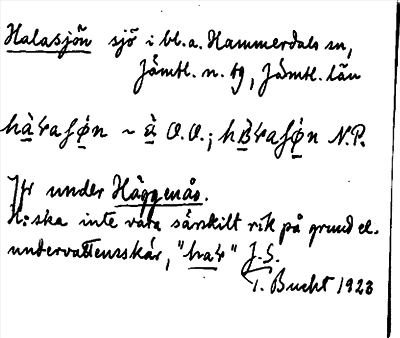 Halasjön sjö i bl.a. Hammerdals sn,
Jämtl. n. tg, Jämtl. län
hàɽaʃøn ~ à O.O.; hɒ̀ɽaʃøn N.P.
Jfr under Häggenås.
N: ska inte vara särskilt rik på grund el.
undervattensskär, "haɽ" J.S.
T. Bucht 1923